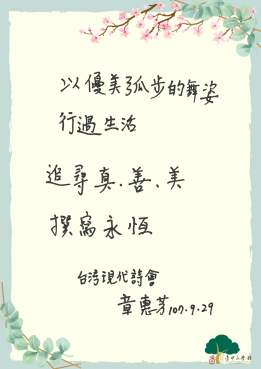 以優美弧步的舞姿
行過生活
追尋真、善、美
撰寫永恆
台灣現代詩會
章惠芬107.9.29